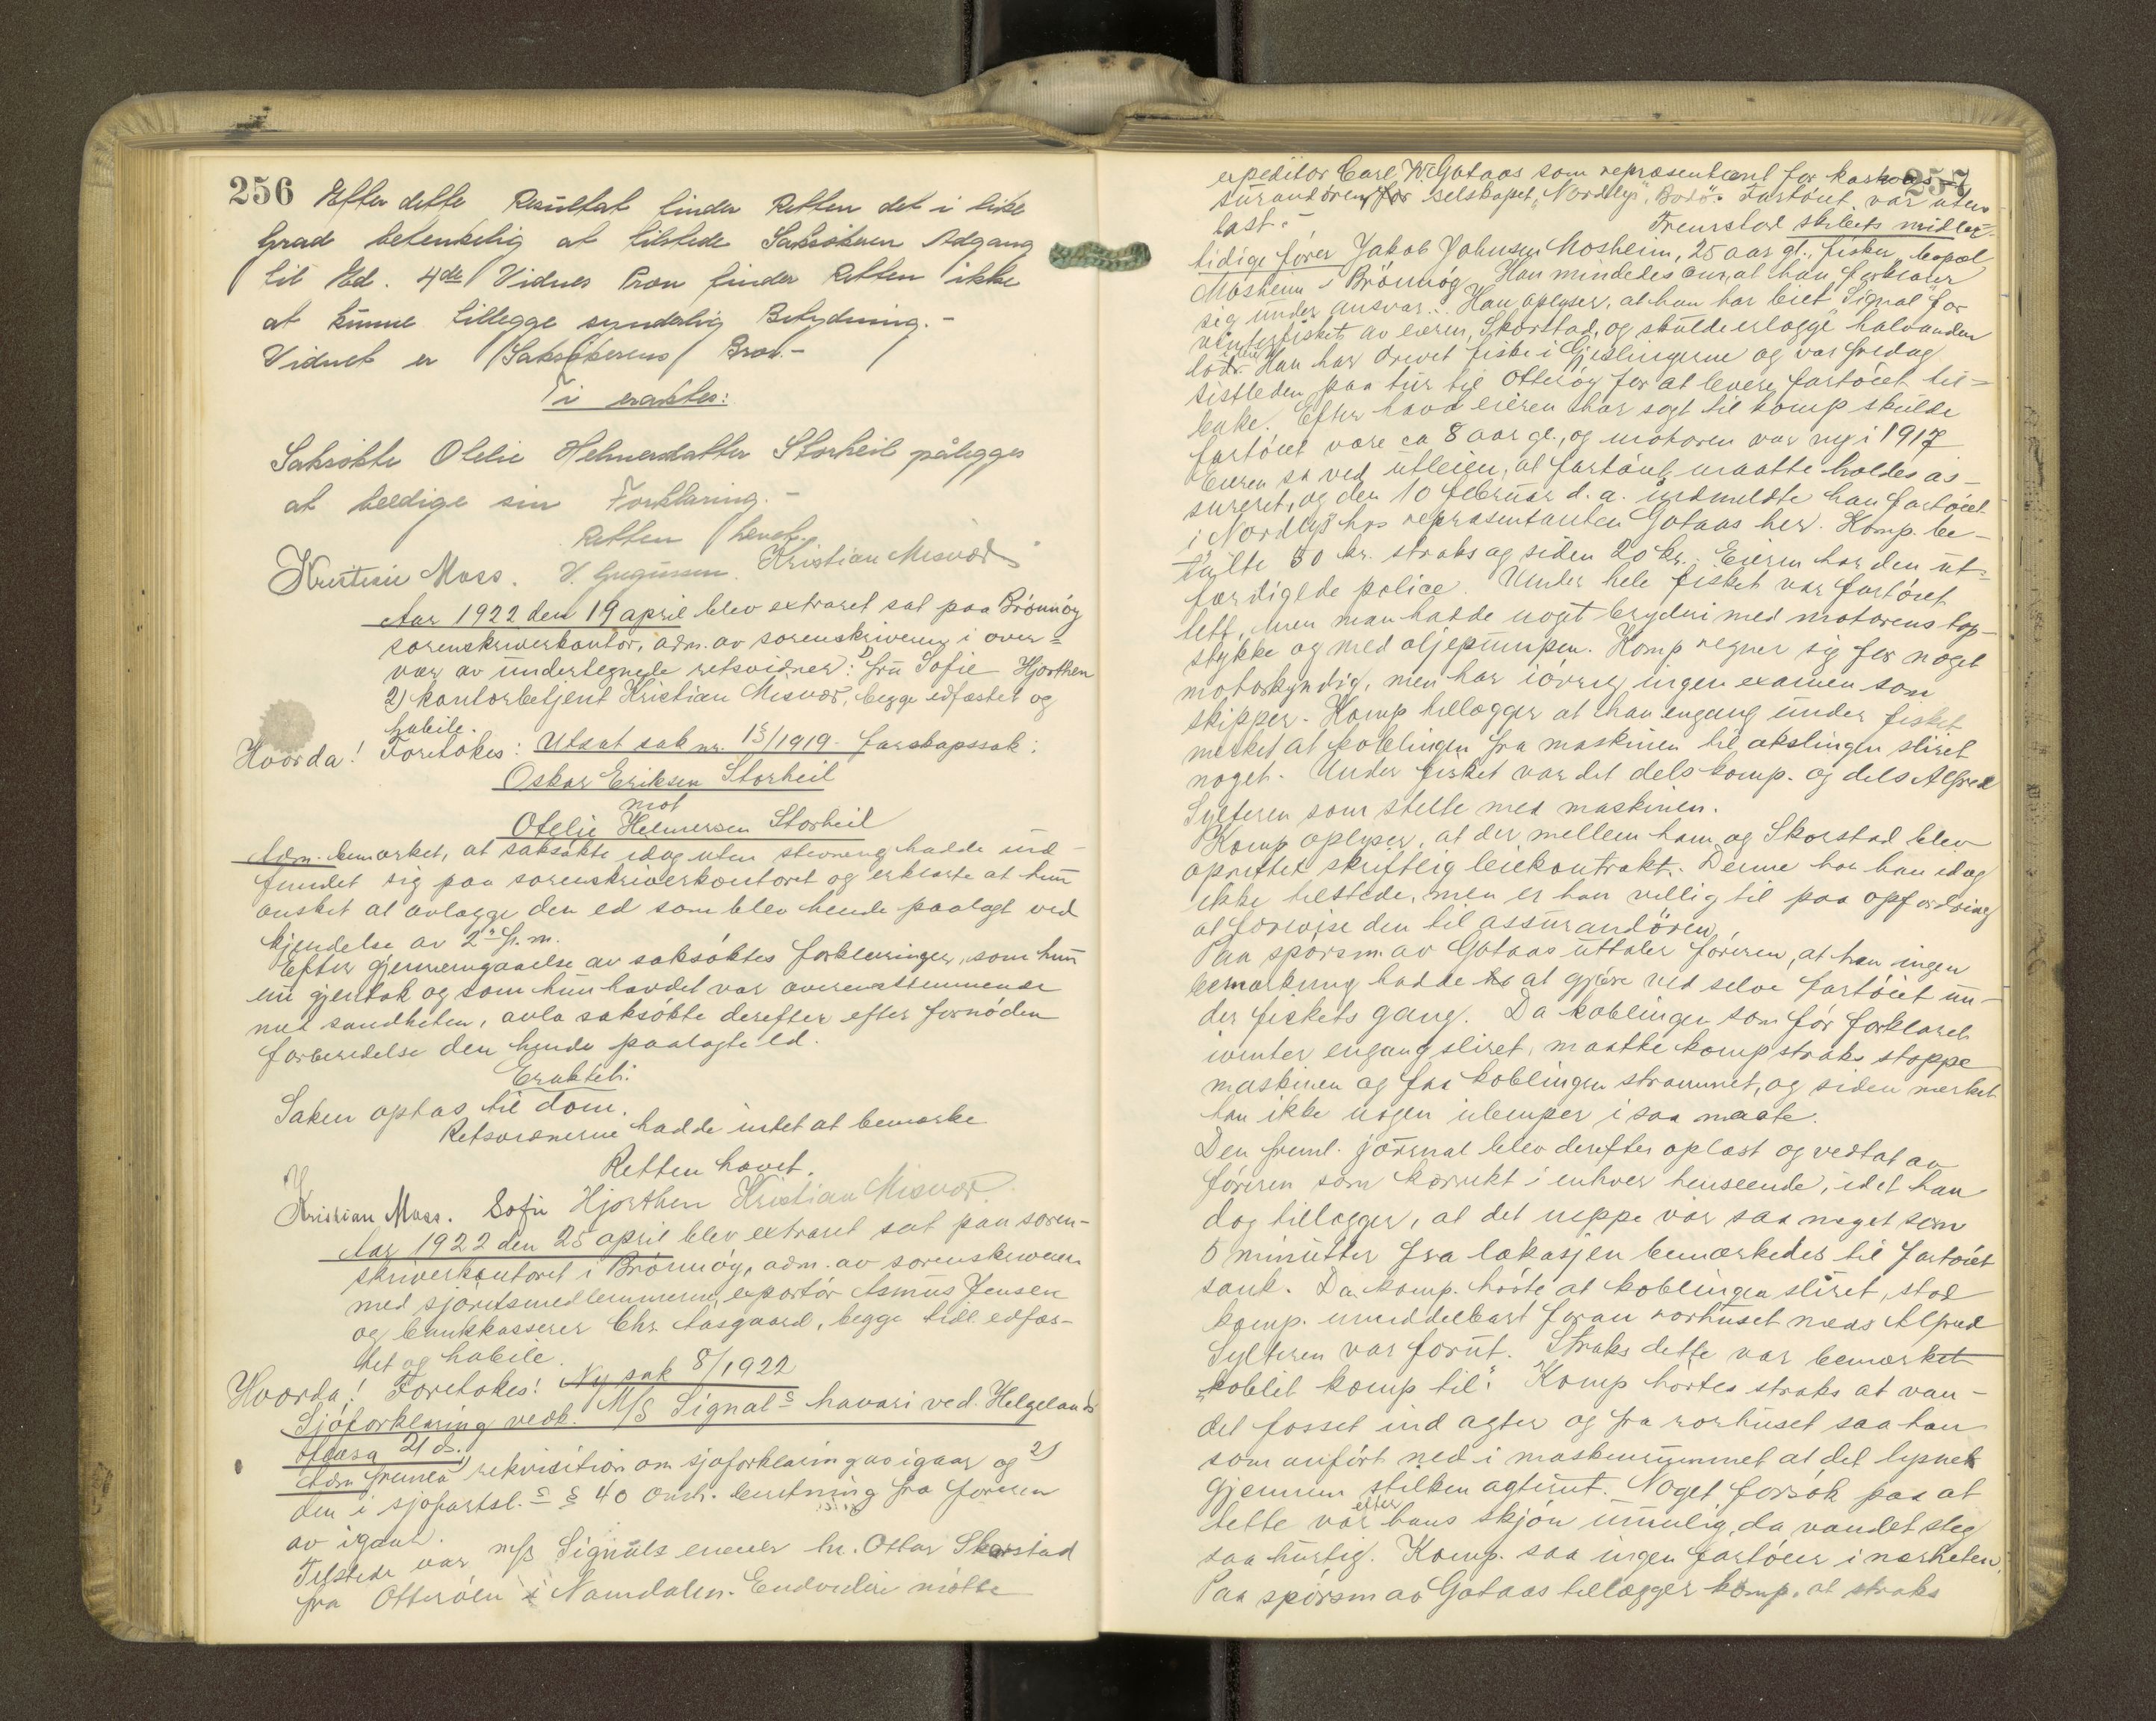 256 Efter dette Resultat finder Retten det i like
Grad betenkelig at tilstede Saksökeren Adgang
til Ed. 4de Vidnes Prov finder Retten ikke
at kunne tillegge synderlig Betydning.-
Vidnet er Saksökerens Bror.-
Ti eraktes:
Saksökte Otelie Helmersdatter Storheil pålegges
at beedige sin Forklaring.-
Retten hevet.
Kristian Moss. V. Gregussen. Kristian Misvær
Aar 1922 den 19 april blev extraret sat paa Brönnöy
sorenskriverkontor, adm. av sorenskriveren i over=
vær av undertegnede retsvidner: 1) fru Sofie Hjorthen
2) kontorbetjent Kristian Misvær, begge edfæstet og
habile.
Hvorda! Foretokes: Utsat sak nr. 13/1919 farskapssak:
Oskar Eriksen Storheil
mot
Otelie Helmersen Storheil
Adm. bemerket, at saksökte idag uten stevning hadde ind-
fundet sig paa sorenskriverkontoret og erklærte at hun
önsket at avlægge den ed som blev hende paalagt ved
kjendelse av 2. f. m.
Efter gjennemgaaelse av saksöktes forklaringer, som hun
nu gjentok og som hun hævdet var overensstemmende
med sandheten, avla saksökte derefter efter fornöden
forberedelse den hende paalagte ed.
Eraktet:
Saken optas til dom.
Retsvidnerne hadde intet at bemerke
Retten hævet.
Kristian Moss. Sofie Hjorthen Kristian Misvær.
Aar 1922 den 25 april blev extraret sat paa soren-
skriverkontoret i Brönnöy, adm. av sorenskriveren
med sjöretsmedlemmerne, exportör Asmus Jensen
og bankkasserer Chr. Aasgaard, begge tidl. edfæs-
tet og habile.
Hvorda! Foretokes: Ny sak 8/1922
Sjöforklaring vedk. M/S Signals havari ved Helgelands
21 ds.
Adm fremla 1) rekvisition om sjöforklaring av igaar og 2)
den i sjöfartsl.s § 40 omh. beretning fra föreren
av igaar.
Tilstede var m/s Signals eier hr. Ottar Skorstad
fra Otteröen i Namdalen. Endvidere mötte
257
expeditör Carl W. Götaas som repræsentant for kaskoas-
surandören for selskapet "Nordlys", Bodö. Fartöiet var uten
last.- Fremstod skibets midler-
tidige förer Jakob Johnsen Mosheim, 25 aar gl., fisker, bopæl
Mosheim i Brönnöy. Han mindedes om, at han forklarer
sig under ansvar. Han oplyser, at han har leiet "Signal" for
vinterfisket av eieren, Skorstad, og skulde erlægge halvanden
lodd. Han har drevet fiske i Gjæslingerne og var fredag
sistleden paa tur til Otteröy for at levere fartöiet til-
bake. Efter hvad eieren har sagt til komp skulde
fartöiet være ca 8 aar gl., og motoren var ny i 1917
Eieren sa ved utleien, at fartöiet maatte holdes as-
sureret, og den 10 februar d. a. indmeldte han fartöiet
i "Nordlys" hos repræsentanten Götaas her. Komp. be-
talte 50 kr. straks og siden 20 kr. Eieren har den ut-
færdigede police. Under hele fisket var fartöiet
tett, men man hadde nogt brydri med motorens top-
stykke og med oljepumpen. Komp regner sig for noget
motorkyndig, men har iövrig ingen examen som
skipper. Komp tillægger at han engang under fisket
merket at koblingen fra maskinen til akslingen sliret
noget. Under fisket var det dels komp. og dels Alfred
Sylteren som stelte med maskinen.
Komp oplyser, at der mellem ham og Skorstad blev
oprettet skriftlig leiekontrakt. Denne har han idag
ikke tilstede, men er han villig til paa opfordring
at forevise den til assurandören.
Paa spörsm. av Götaas uttaler föreren, at han ingen
bemerkning hadde at gjöre ved selve fartöiet un-
der fiskets gang. Da koblingen som för forklaret
ivinter engang sliret, maatte komp straks stoppe
maskinen og faa koblingen strammet, og siden merket
han ikke nogen ulemper i saa maate.
Den freml. journal blev derefter oplæst og vedtat av
föreren som korrekt i enhver henseende, idet han
dog tillægger, at det neppe var saa meget som
5 minutter fra lækasjen bemærkedes til fartöiet
sank. Da komp. hörte at koblingen sliret, stod
komp. umiddelbart foran rorhuset mens Alfred
Sylteren var forut. Straks dette var bemerket
"koblet komp til". Komp hörtes straks at van-
det fosset ind agter og fra rorhuset saa han
som anfört ned i maskinrummet at det lysnet
gjennem stilken agterut. Noget forsök paa at
tette var efter hans skjön umulig, da vandet steg
saa hurtig. Komp. saa ingen fartöier i nærheten.
Paa spörsm av Götaas tillægger komp. at straks